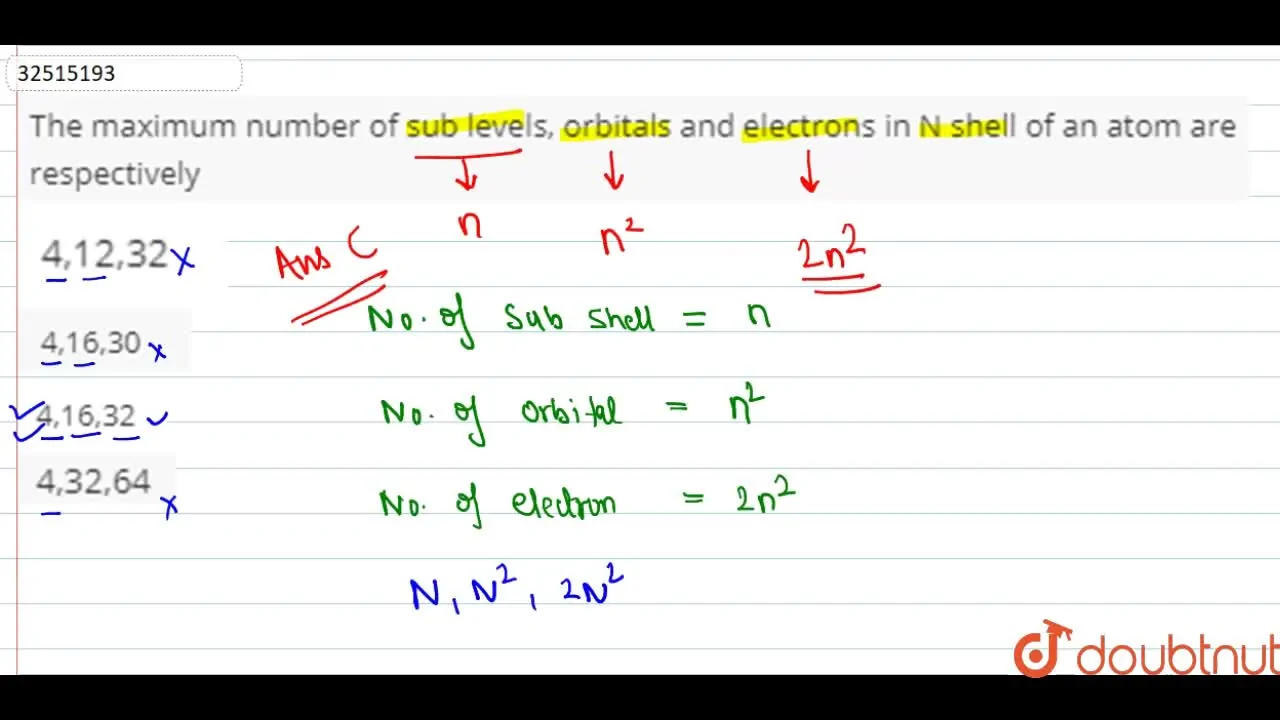 32515193
The maximum number of sub levels, orbitals and electrons in N shell of an atom are
respectively
n
n²
2n²
4,12,32 x
Ans C
No. of Sub Shell = n
4,16,30 x
4,16,32
No. of orbital = n²
4,32,64 x
No. of electron = 2n²
N, N², 2N²
doubtnut